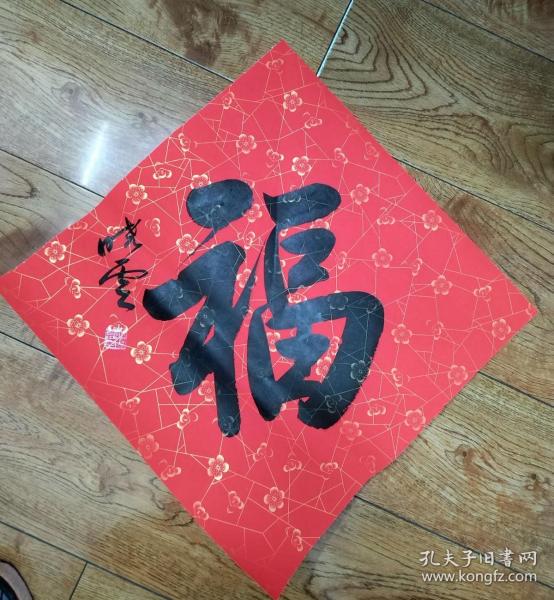 福
晓云
孔夫子旧书网
www.kongfz.com